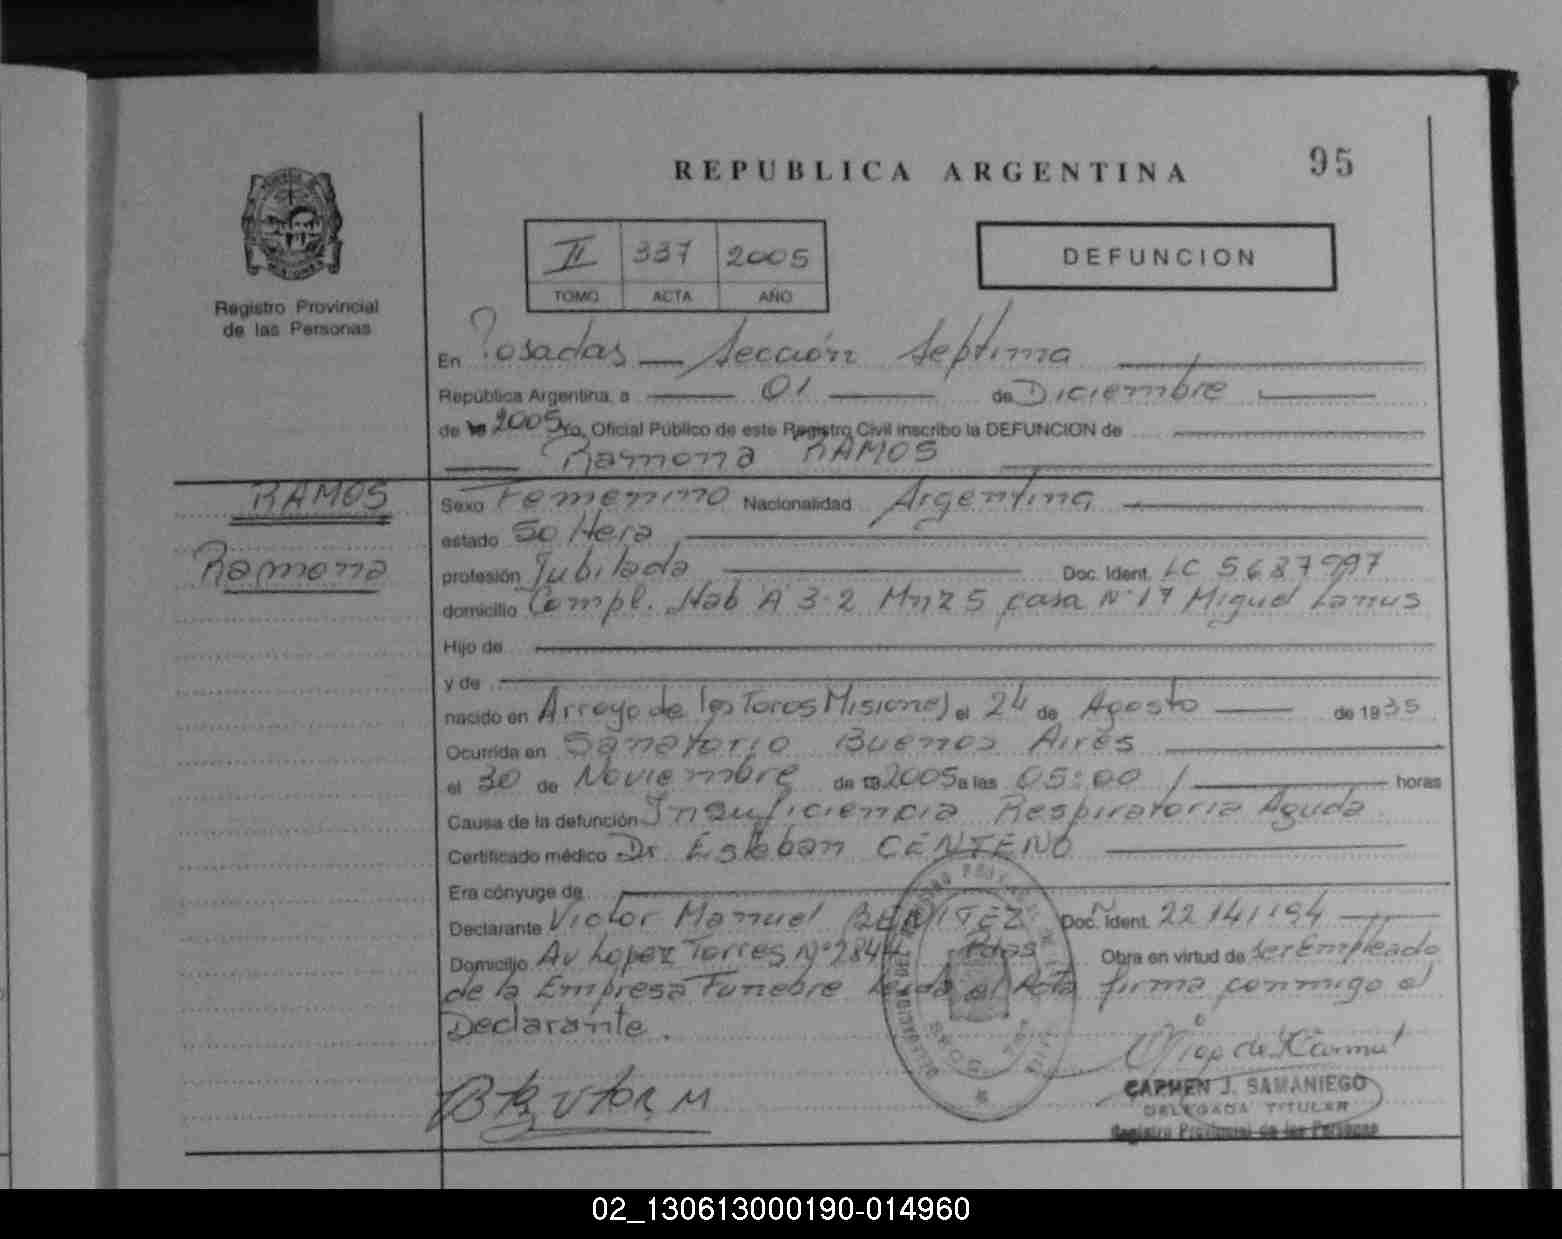 REPUBLICA ARGENTINA 95
II 337 2005
TOMO ACTA AÑO
DEFUNCION
Registro Provincial
de las Personas
En Posadas — Sección Septima
República Argentina, a 01 de Diciembre
de 19 2005 Yo, Oficial Público de este Registro Civil inscribo la DEFUNCION de
Ramona RAMOS
RAMOS
Ramona
Sexo Femenino Nacionalidad Argentina
estado Soltera
profesión Jubilada Doc. Ident. LC 5687997
domicilio Compl. Hab A 3-2 Mnz 5 casa N° 17 Miguel Lanus
Hijo de
y de
nacido en Arroyo de los Toros Misiones el 24 de Agosto de 1935
Ocurrida en Sanatorio Buenos Aires
el 30 de Noviembre de 19 2005 a las 05:00 horas
Causa de la defunción Insuficiencia Respiratoria Aguda
Certificado médico Dr. Esteban CENTENO
Era cónyuge de
Declarante Victor Manuel BENITEZ Doc. Ident. 22141194
Domicilio Av Lopez Torres N° 2844 Pdas Obra en virtud de ser Empleado
de la Empresa Funebre Leida el Acta firma conmigo el
Declarante.
CARMEN J. SAMANIEGO
DELEGADA TITULAR
Registro Provincial de las Personas
02_130613000190-014960